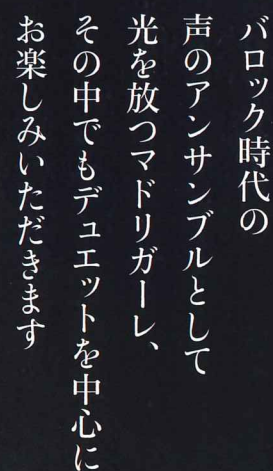 バロック時代の
声のアンサンブルとして
光を放つマドリガーレ、
その中でもデュエットを中心に
お楽しみいただきます